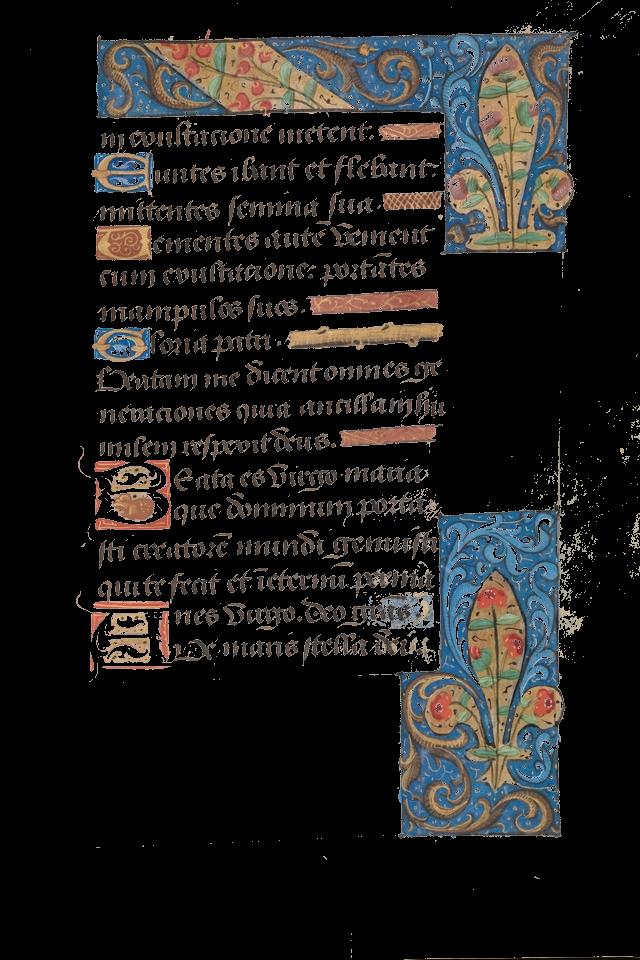 in exultacione metent.
Euntes ibant et flebant:
mittentes semina sua.
Venientes autē venient
cum exultacione: portātes
manipulos suos.
Gloria patri.
Beatam me dicent omnes ge
neraciones quia ancillam hu
milem respexit deus.
Beata es virgo maria
que dominum porta
sti creatorē mundi genuisti
qui te fecit et īeternū perma
nes virgo. deo
Ave maris stella